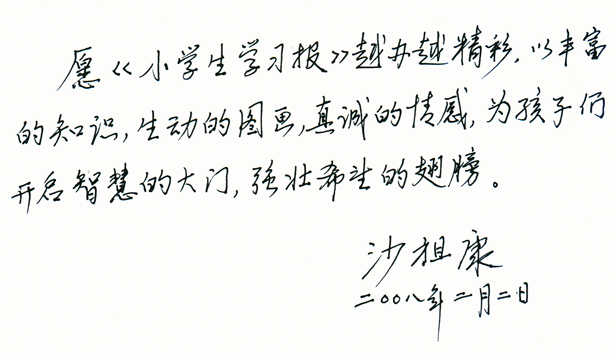 愿《小学生学习报》越办越精彩，以丰富
的知识，生动的图画，真诚的情感，为孩子们
开启智慧的大门，强壮希望的翅膀。
沙祖康
二〇〇八年二月二日